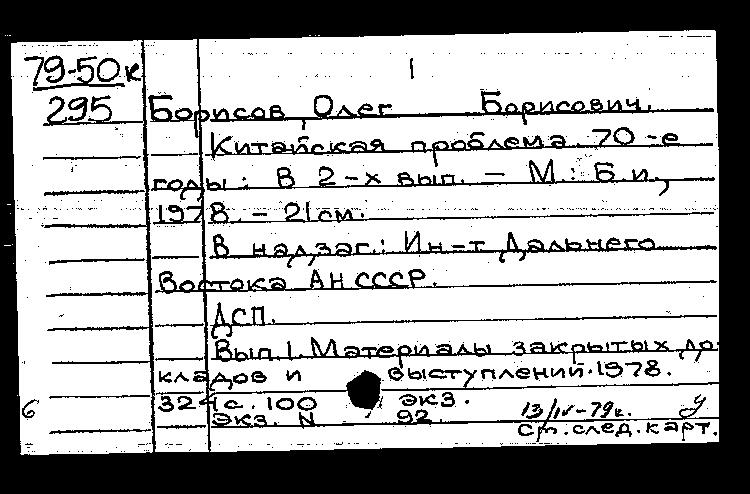 79-50к 1
295 Борисов, Олег Борисович.
Китайская проблема. 70-е
годы: В 2-х вып. - М.: Б.и.,
1978. - 21см.
В надзаг.: Ин-т Дальнего
Востока АН СССР.
ДСП.
Вып.1. Материалы закрытых до-
кладов и выступлений. 1978.
324с. 100 экз.
6 Экз. N 92. 13/IV-79г. У
См. след. карт.